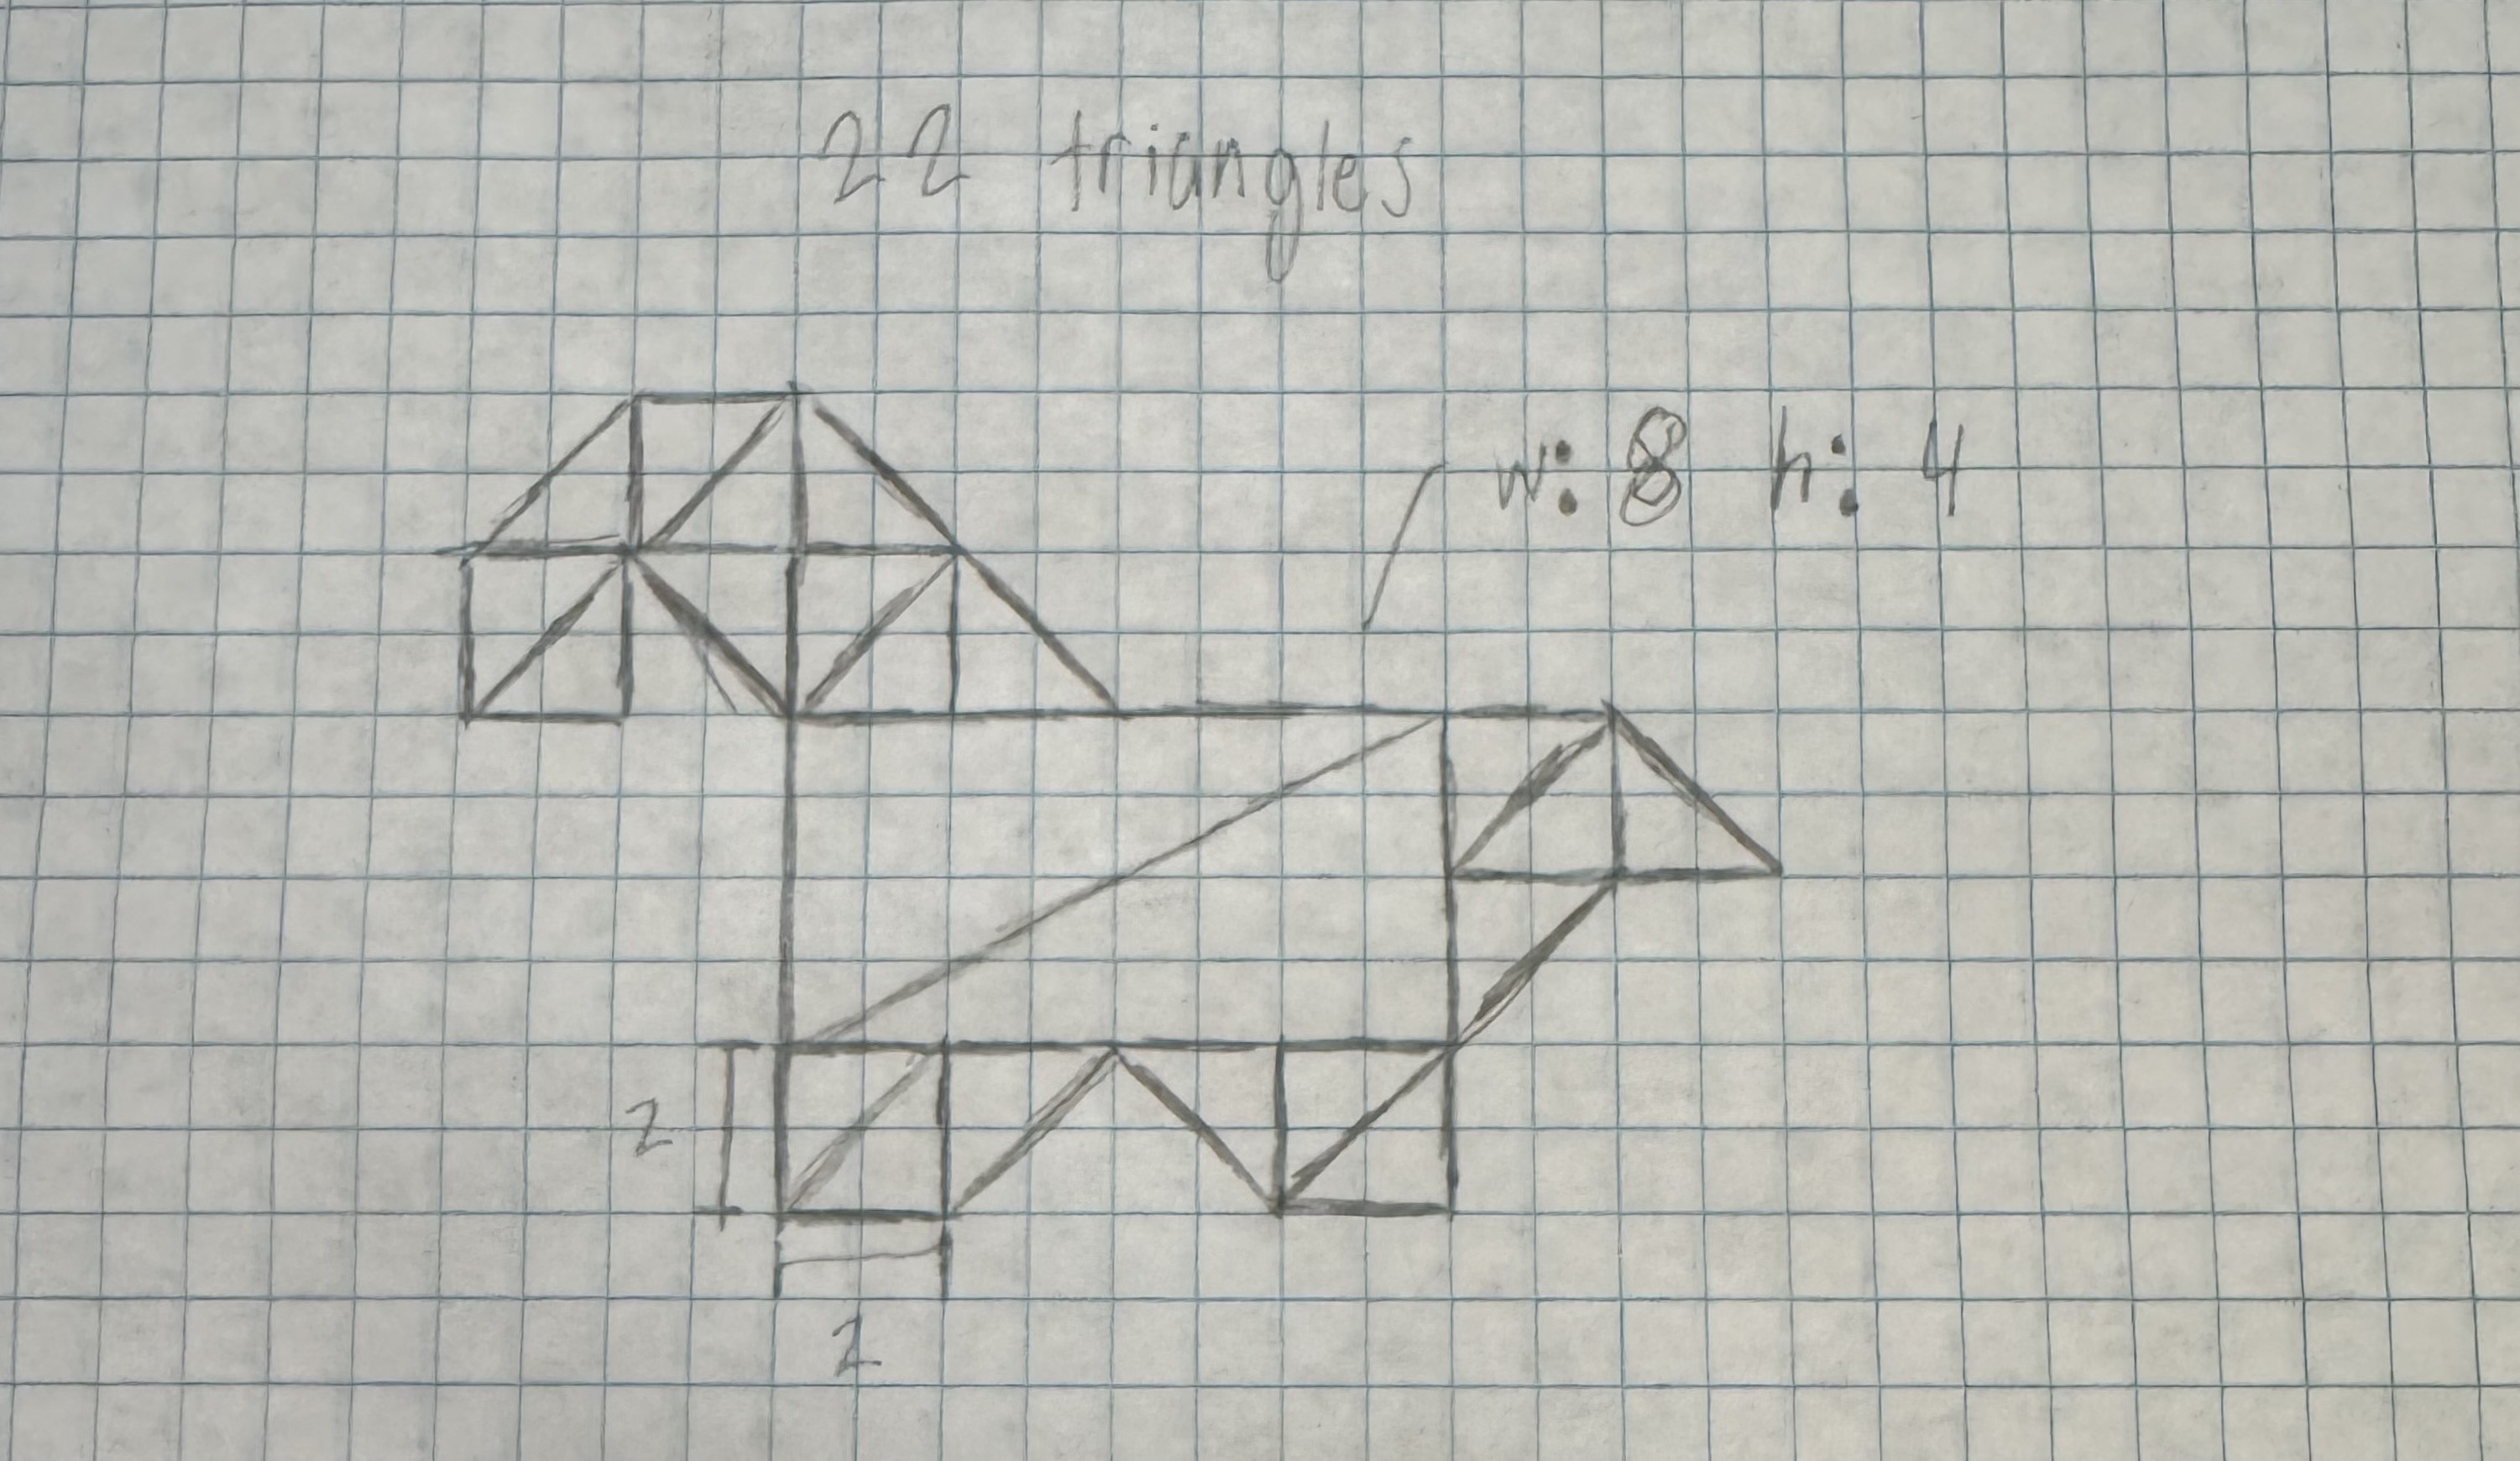 22 triangles
w: 8 h: 4
2
2